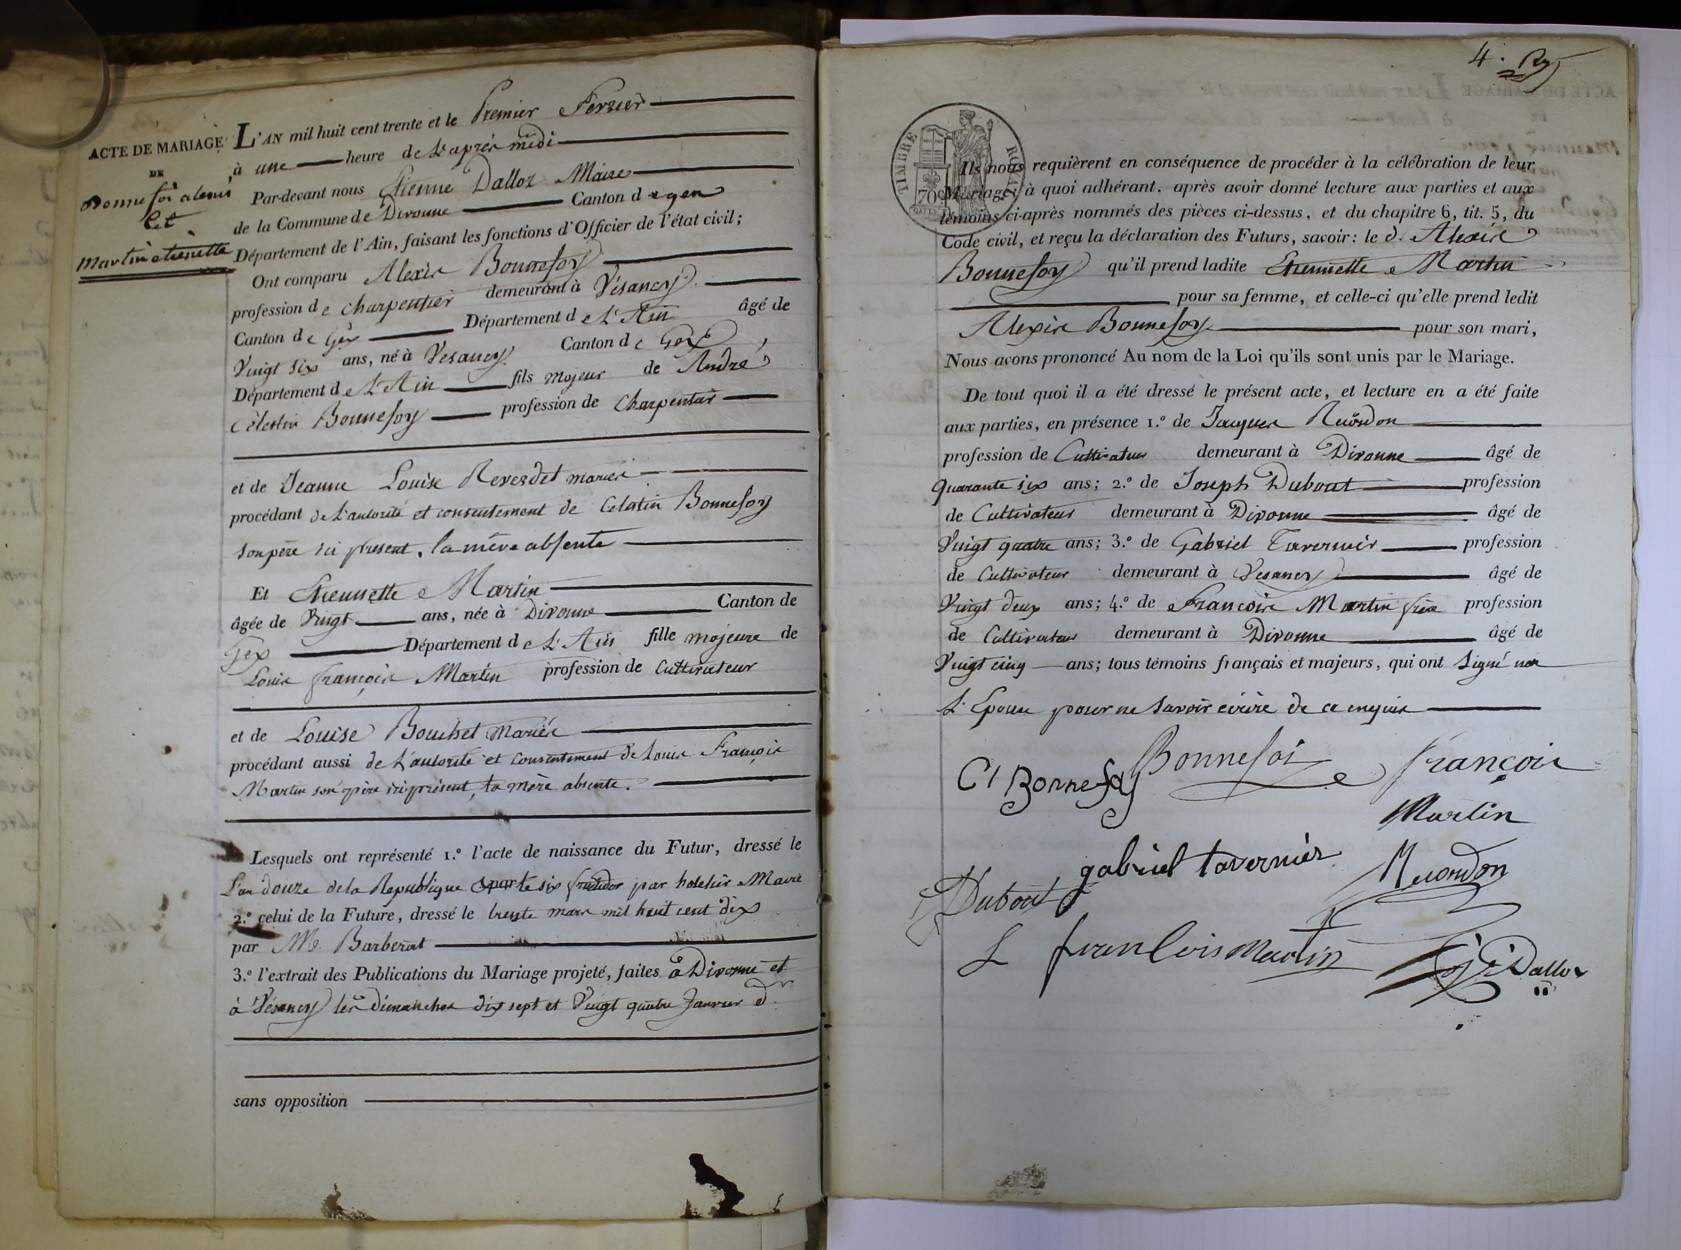 ACTE DE MARIAGE
DE
Bonnefoi alexis
Et
Martin etienette
L'AN mil huit cent trente et le Premier Fevrier
à une heure de L'après midi
Par-devant nous Etienne Dalloz Maire
de la Commune de Divonne Canton de gex
Département de l'Ain, faisant les fonctions d'Officier de l'état civil;
Ont comparu Alexis Bonnefoy
profession de charpentier demeurant à Vesancy
Canton de Gex Département de L'Ain âgé de
Vingt six ans, né à Vesancy Canton de Gex
Département de L'Ain fils majeur de André
Celestin Bonnefoy profession de Charpentier
et de Jeanne Louise Reverdet mariés
procédant de L'autorité et consentement de Celestin Bonnefoy
son père ici present, la mère absente
Et Etiennette Martin
âgée de Vingt ans, née à Divonne Canton de
Gex Département de L'Ain fille majeure de
Louis françois Martin profession de Cultivateur
et de Louise Bouchet Mariés
procédant aussi de L'autorité et consentement de Louis François
Martin son père ici présent, la mère absente.
Lesquels ont représenté 1.º l'acte de naissance du Futur, dressé le
L'an douze de la Republique le six fructidor par Maire
2.º celui de la Future, dressé le trente mars mil huit cent dix
par Mr. Barberat
3.º l'extrait des Publications du Mariage projeté, faites à Divonne et
à Vésancy les dimanches dix sept et Vingt quatre Janvier dr.
sans opposition
4.
TIMBRE ROYAL
70c
Ils nous requièrent en conséquence de procéder à la célébration de leur
Mariage, à quoi adhérant, après avoir donné lecture aux parties et aux
témoins ci-après nommés des pièces ci-dessus, et du chapitre 6, tit. 5, du
Code civil, et reçu la déclaration des Futurs, savoir: le d. Alexis
Bonnefoy qu'il prend ladite Etiennette Martin
pour sa femme, et celle-ci qu'elle prend ledit
Alexis Bonnefoy pour son mari,
Nous avons prononcé Au nom de la Loi qu'ils sont unis par le Mariage.
De tout quoi il a été dressé le présent acte, et lecture en a été faite
aux parties, en présence 1.º de Jacques Ruondon
profession de Cultivateur demeurant à Divonne âgé de
Quarante six ans; 2.º de Joseph Dubout profession
de Cultivateur demeurant à Divonne âgé de
Vingt quatre ans; 3.º de Gabriel Tavernier profession
de Cultivateur demeurant à Vesancy âgé de
Vingt deux ans; 4.º de Francois Martin frère profession
de Cultivateur demeurant à Divonne âgé de
Vingt cinq ans; tous témoins français et majeurs, qui ont Signé non
L'Epouse pour ne Savoir écrire de ce enquise
Ct Bonnefoy Bonnefoi françois
Martin
gabriel tavernier Ruondon
Dubout
L francois Martin Dalloz